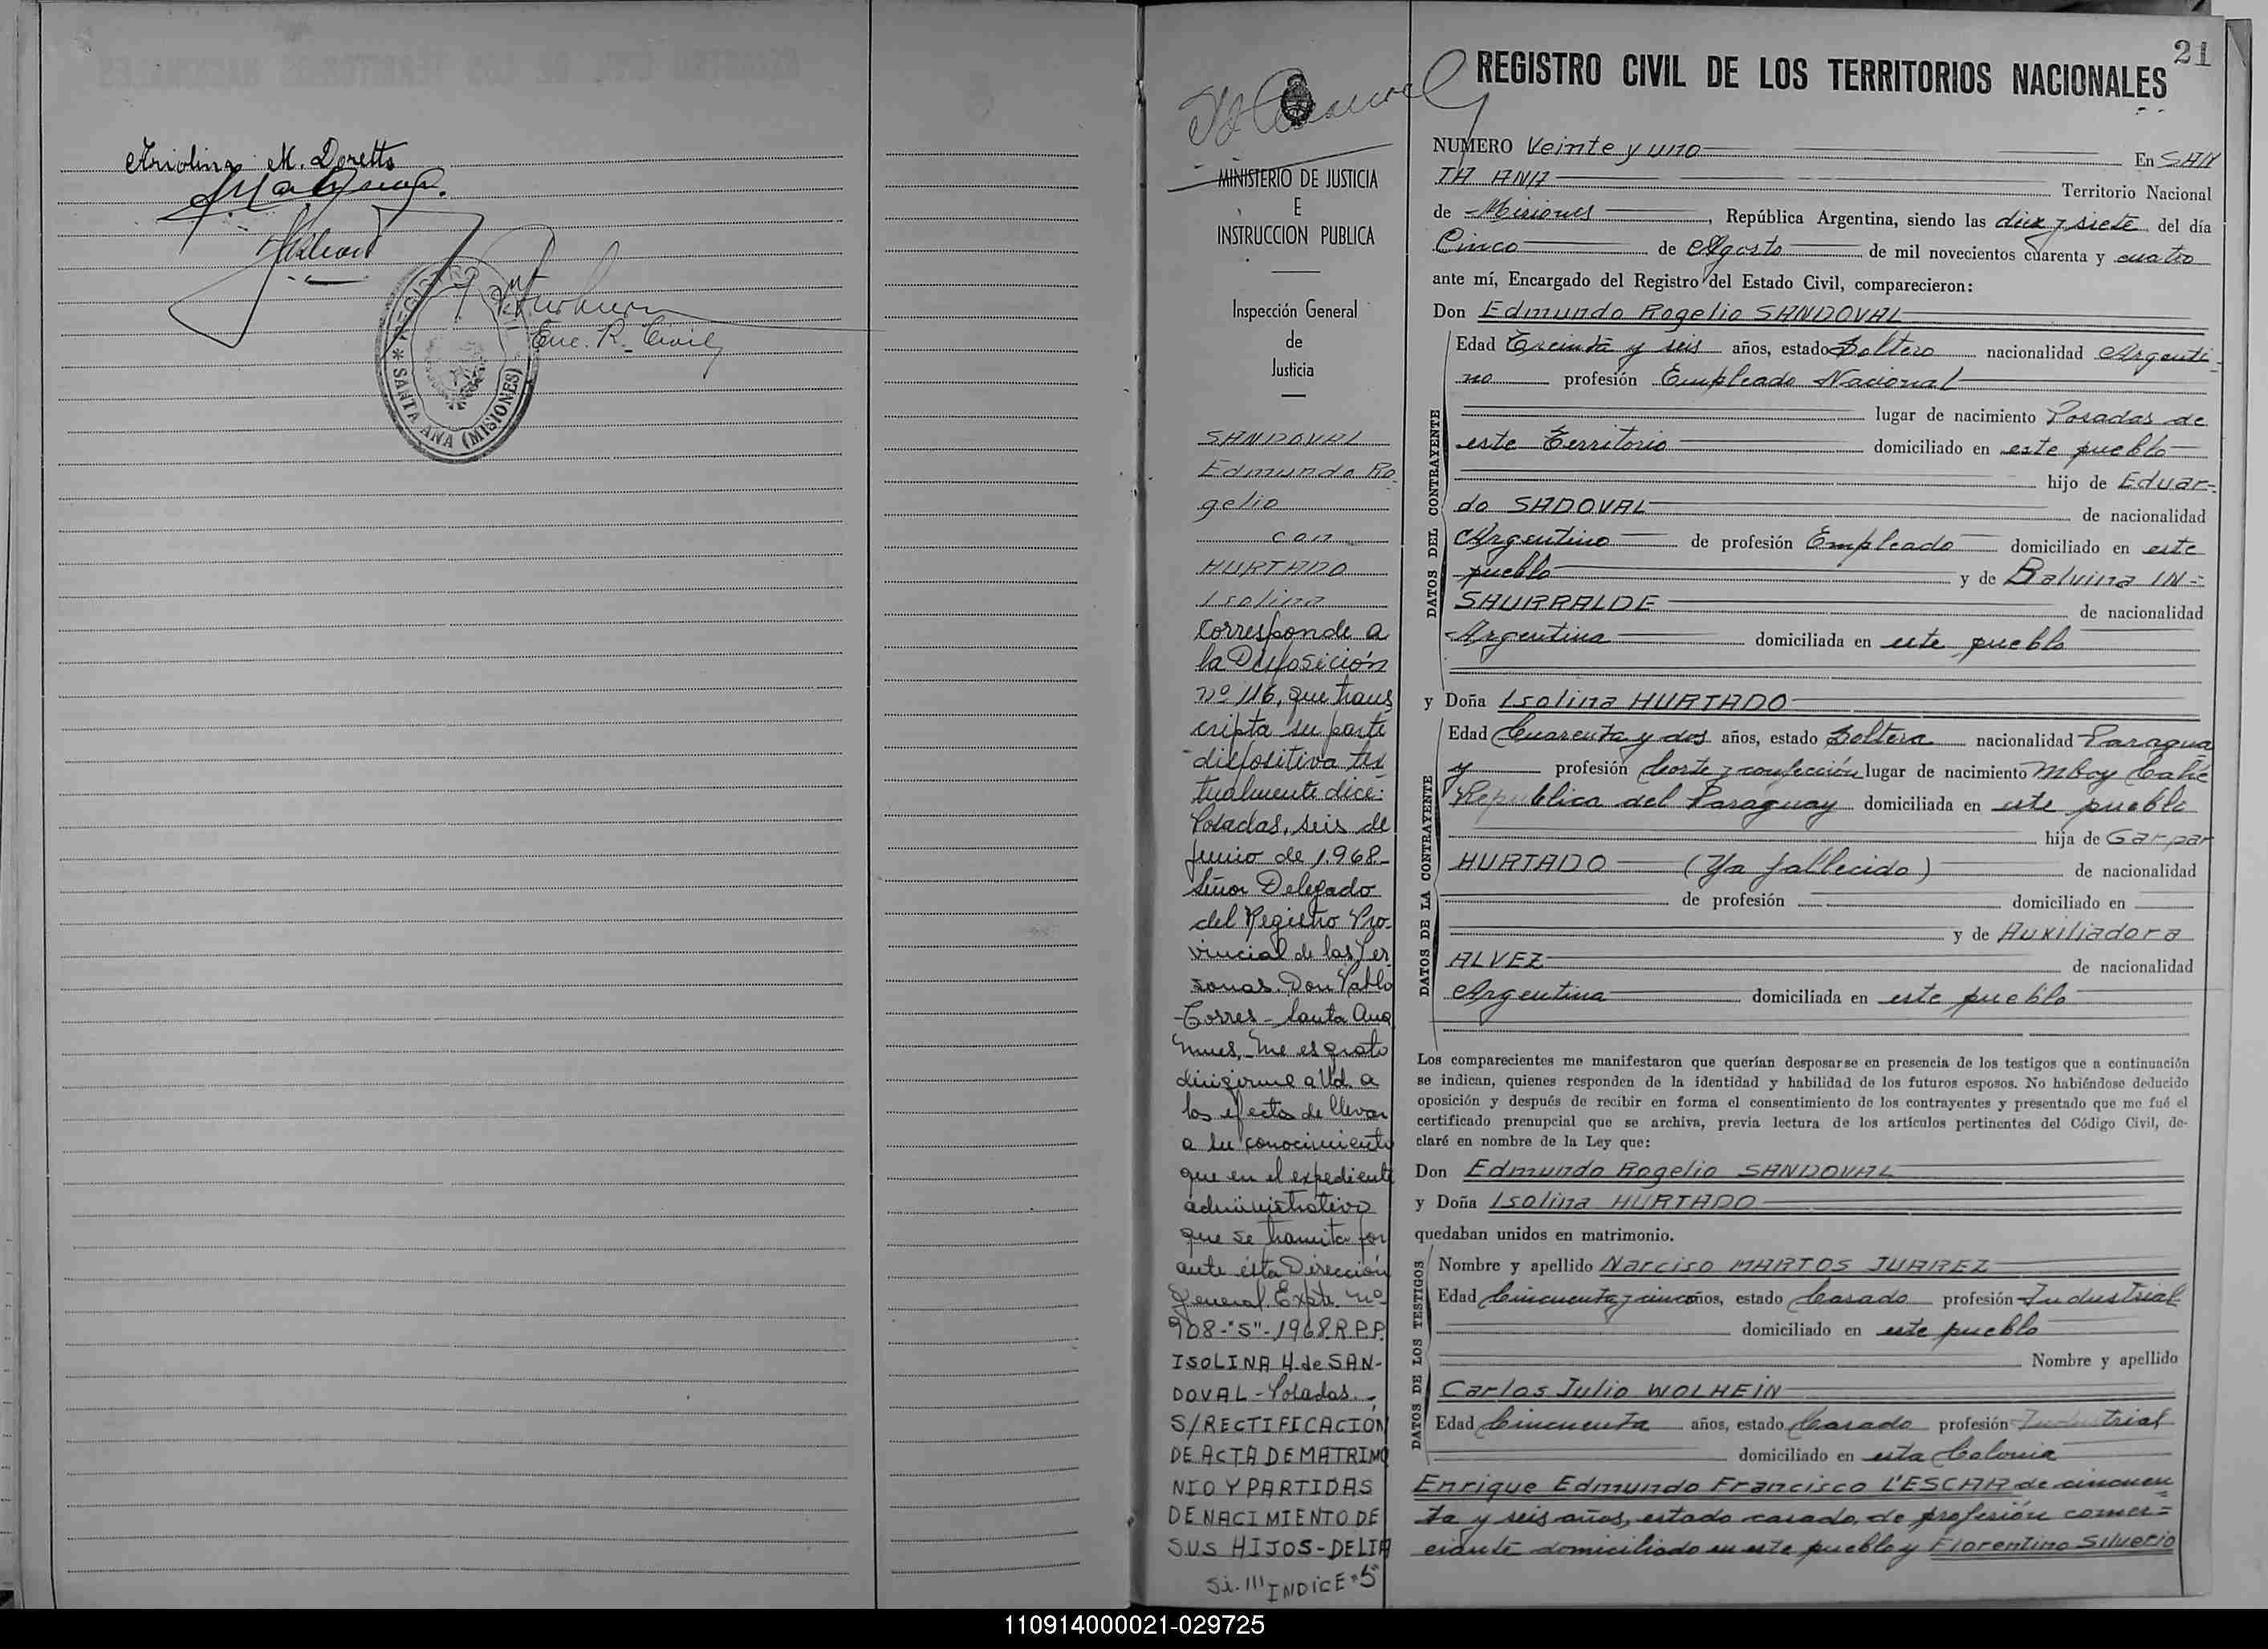 Ariolina M. Doretto
Enc. R. Civil
* REGISTRO CIVIL * SANTA ANA (MISIONES)
21
REGISTRO CIVIL DE LOS TERRITORIOS NACIONALES
MINISTERIO DE JUSTICIA
E
INSTRUCCION PUBLICA
Inspección General
de
Justicia
SANDOVAL
Edmundo Ro-
gelio
con
HURTADO
Isolina
Corresponde a
la Disposición
nº 116, que trans
cripta su parte
dispositiva tex
tualmente dice:
Posadas, seis de
junio de 1.968-
Señor Delegado
del Registro Pro-
vincial de las Per
sonas. Don Pablo
Torres - Santa Ana
Mnes, - Me es grato
dirigirme a Ud. a
los efectos de llevar
a su conocimiento
que en el expediente
administrativo
que se tramita por
ante ésta Dirección
General. Expte. nº
908-"S"-1968 R.P.P.
ISOLINA H. de SAN-
DOVAL - Posadas.-
S/RECTIFICACIÓN
DE ACTA DE MATRIMO
NIO Y PARTIDAS
DE NACIMIENTO DE
SUS HIJOS - DELIA
Si. III INDICE "5"
NUMERO Veinte y uno En SAN
TA ANA Territorio Nacional
de Misiones, República Argentina, siendo las diez y siete del día
Cinco de Agosto de mil novecientos cuarenta y cuatro
ante mí, Encargado del Registro del Estado Civil, comparecieron:
Don Edmundo Rogelio SANDOVAL
DATOS DEL CONTRAYENTE
Edad Treinta y seis años, estado Soltero nacionalidad Argenti-
no profesión Empleado Nacional
lugar de nacimiento Posadas de
este Territorio domiciliado en este pueblo
hijo de Eduar-
do SADOVAL de nacionalidad
Argentino de profesión Empleado domiciliado en este
pueblo y de Balvina IN-
SAURRALDE de nacionalidad
Argentina domiciliada en este pueblo
y Doña Isolina HURTADO
DATOS DE LA CONTRAYENTE
Edad Cuarenta y dos años, estado Soltera nacionalidad Paragua
y profesión Corte y confección lugar de nacimiento Mboy Cahé
Republica del Paraguay domiciliada en este pueblo
hija de Garpar
HURTADO (Ya fallecido) de nacionalidad
de profesión domiciliado en
y de Auxiliadora
ALVEZ de nacionalidad
Argentina domiciliada en este pueblo
Los comparecientes me manifestaron que querían desposarse en presencia de los testigos que a continuación
se indican, quienes responden de la identidad y habilidad de los futuros esposos. No habiéndose deducido
oposición y después de recibir en forma el consentimiento de los contrayentes y presentado que me fué el
certificado prenupcial que se archiva, previa lectura de los artículos pertinentes del Código Civil, de-
claré en nombre de la Ley que:
Don Edmundo Rogelio SANDOVAL
y Doña Isolina HURTADO
quedaban unidos en matrimonio.
DATOS DE LOS TESTIGOS
Nombre y apellido Narciso MARTOS JUAREZ
Edad Cincuenta y cinco años, estado Casado profesión Industrial
domiciliado en este pueblo
Nombre y apellido
Carlos Julio WOLHEIN
Edad Cincuenta años, estado Casado profesión Industrial
domiciliado en esta Colonia
Enrique Edmundo Francisco L'ESCAR de cincuen
ta y seis años, estado casado, de profesión comer=
ciante domiciliado en este pueblo y Florentino Silverio
110914000021-029725